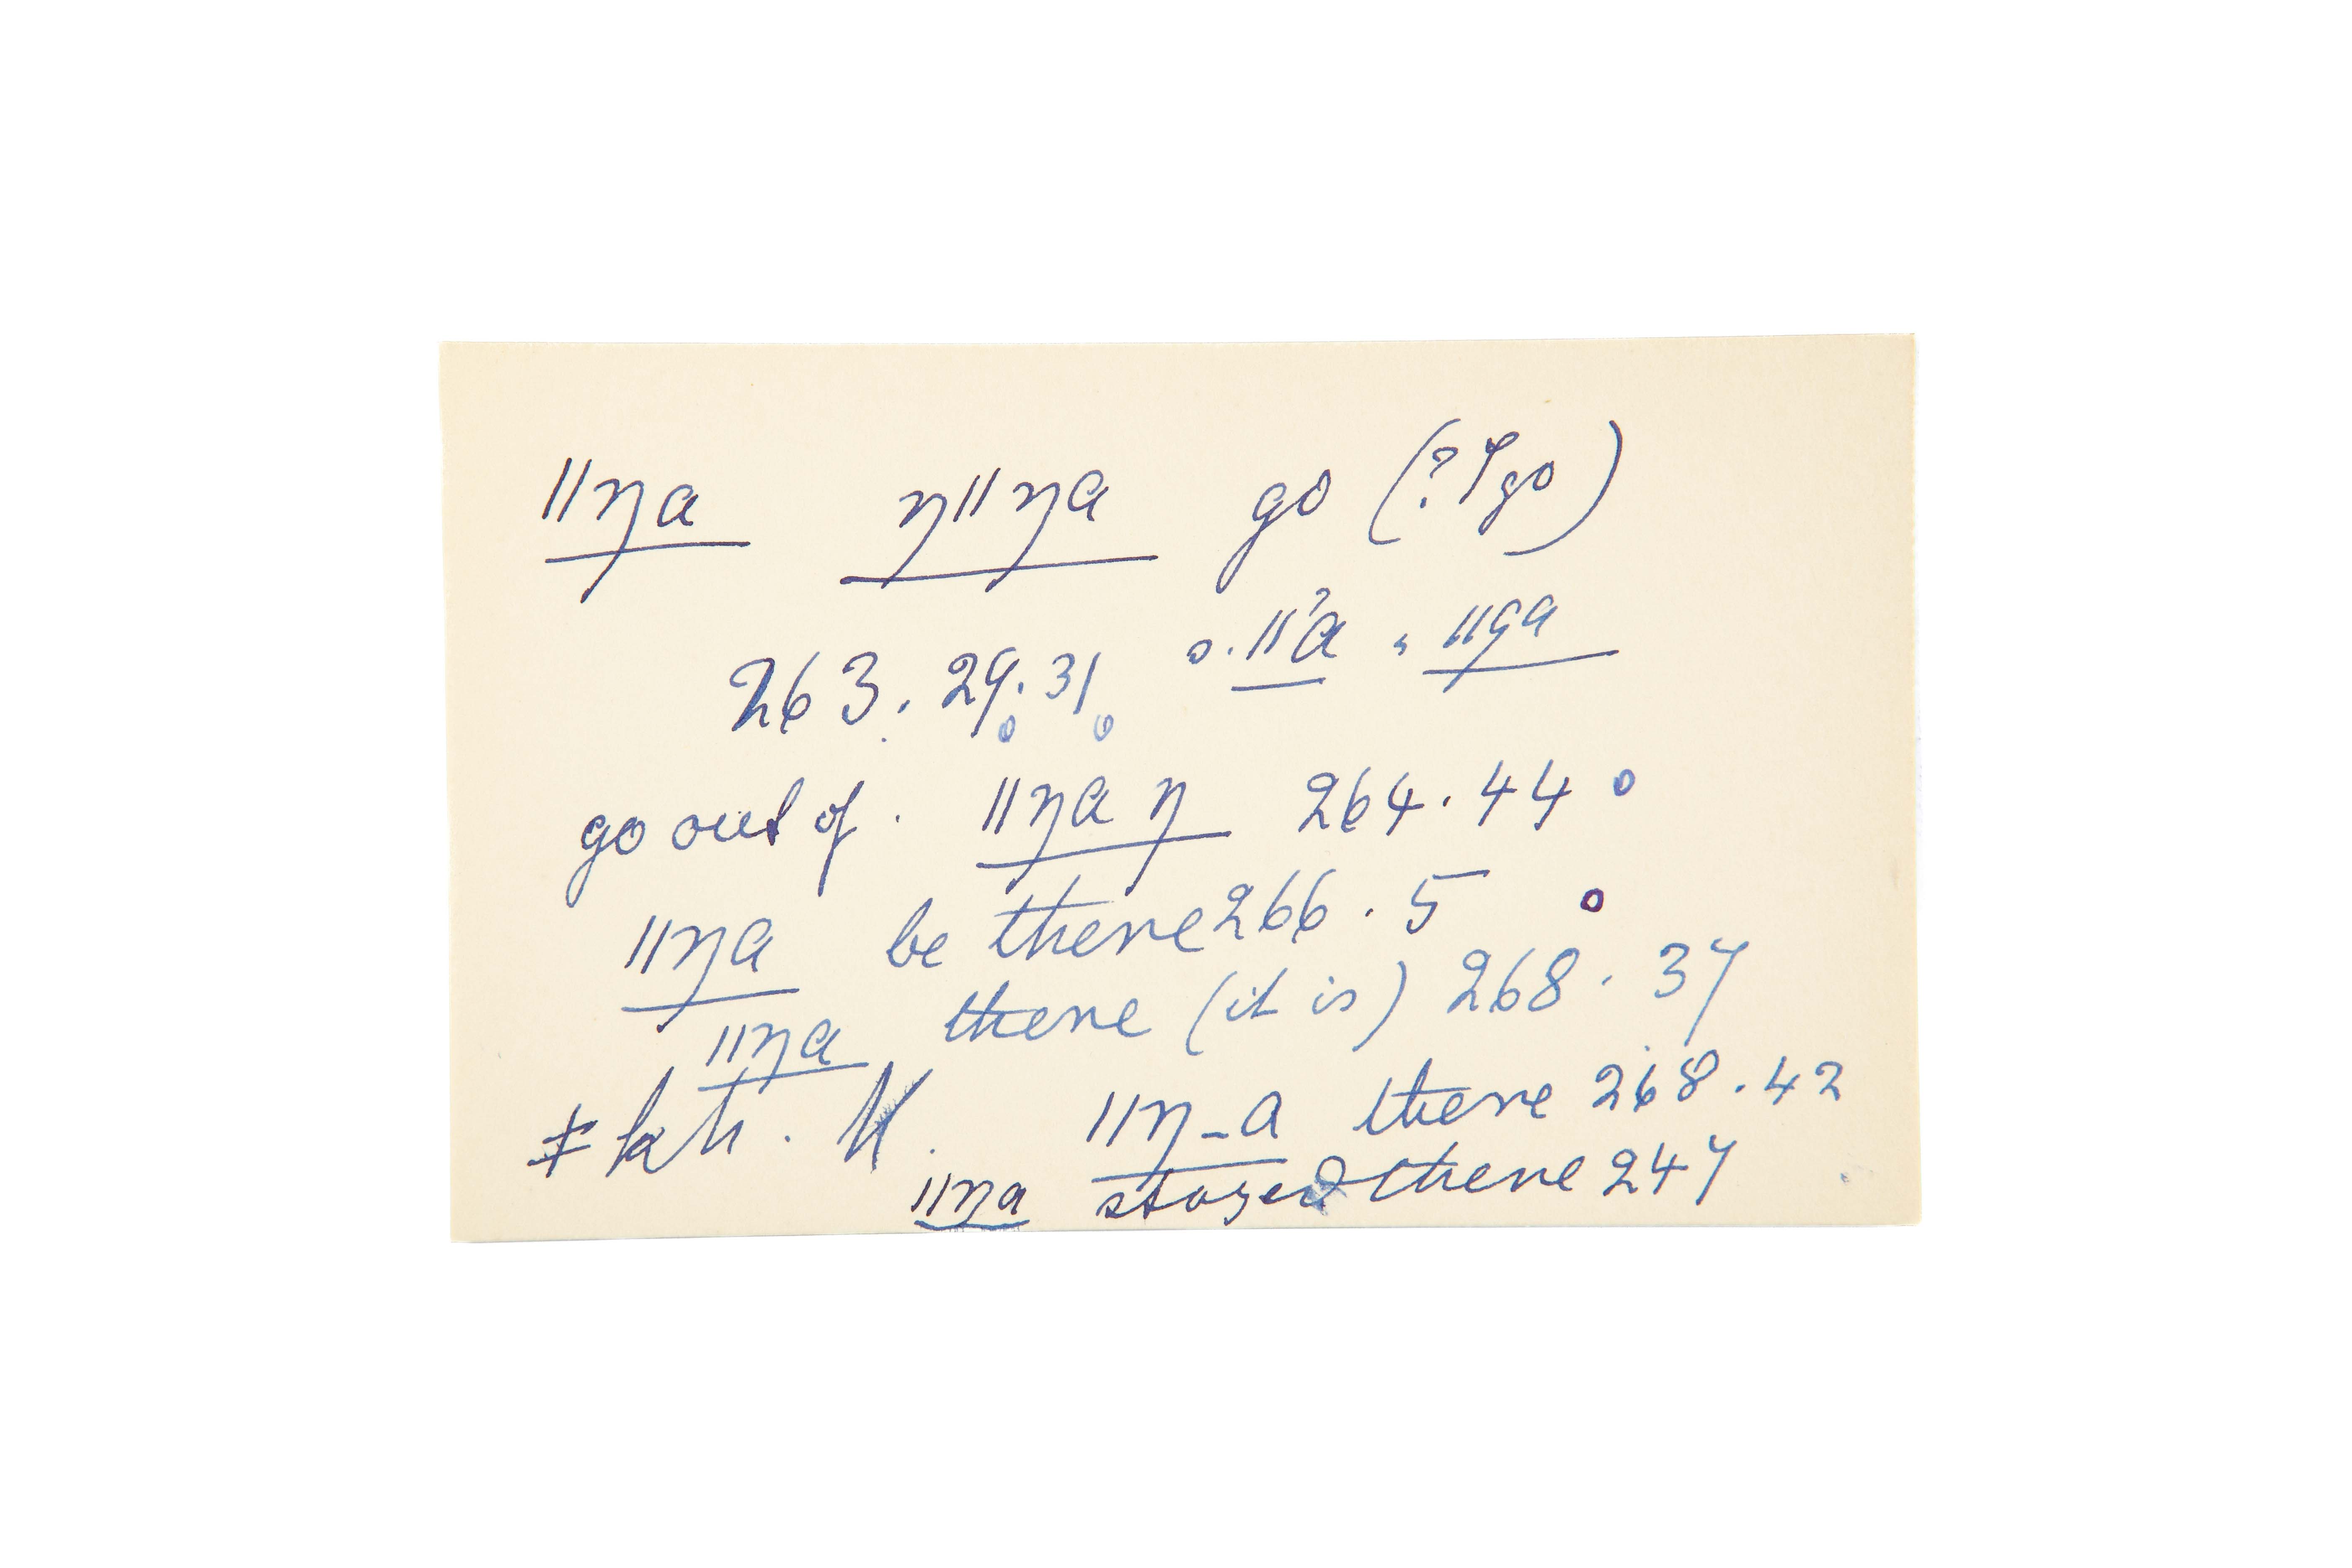 ǁŋa ŋǁŋa go (? I go)
263. 29. 31 s. ǁˀa, ǁga
go out of. ǁŋa ŋ 264. 44 o
ǁŋa be there 266. 5 o
ǁŋa there (it is) 268. 37
ǂkh. ǁŋ_a there 268. 42
ǁŋa stayed there 247